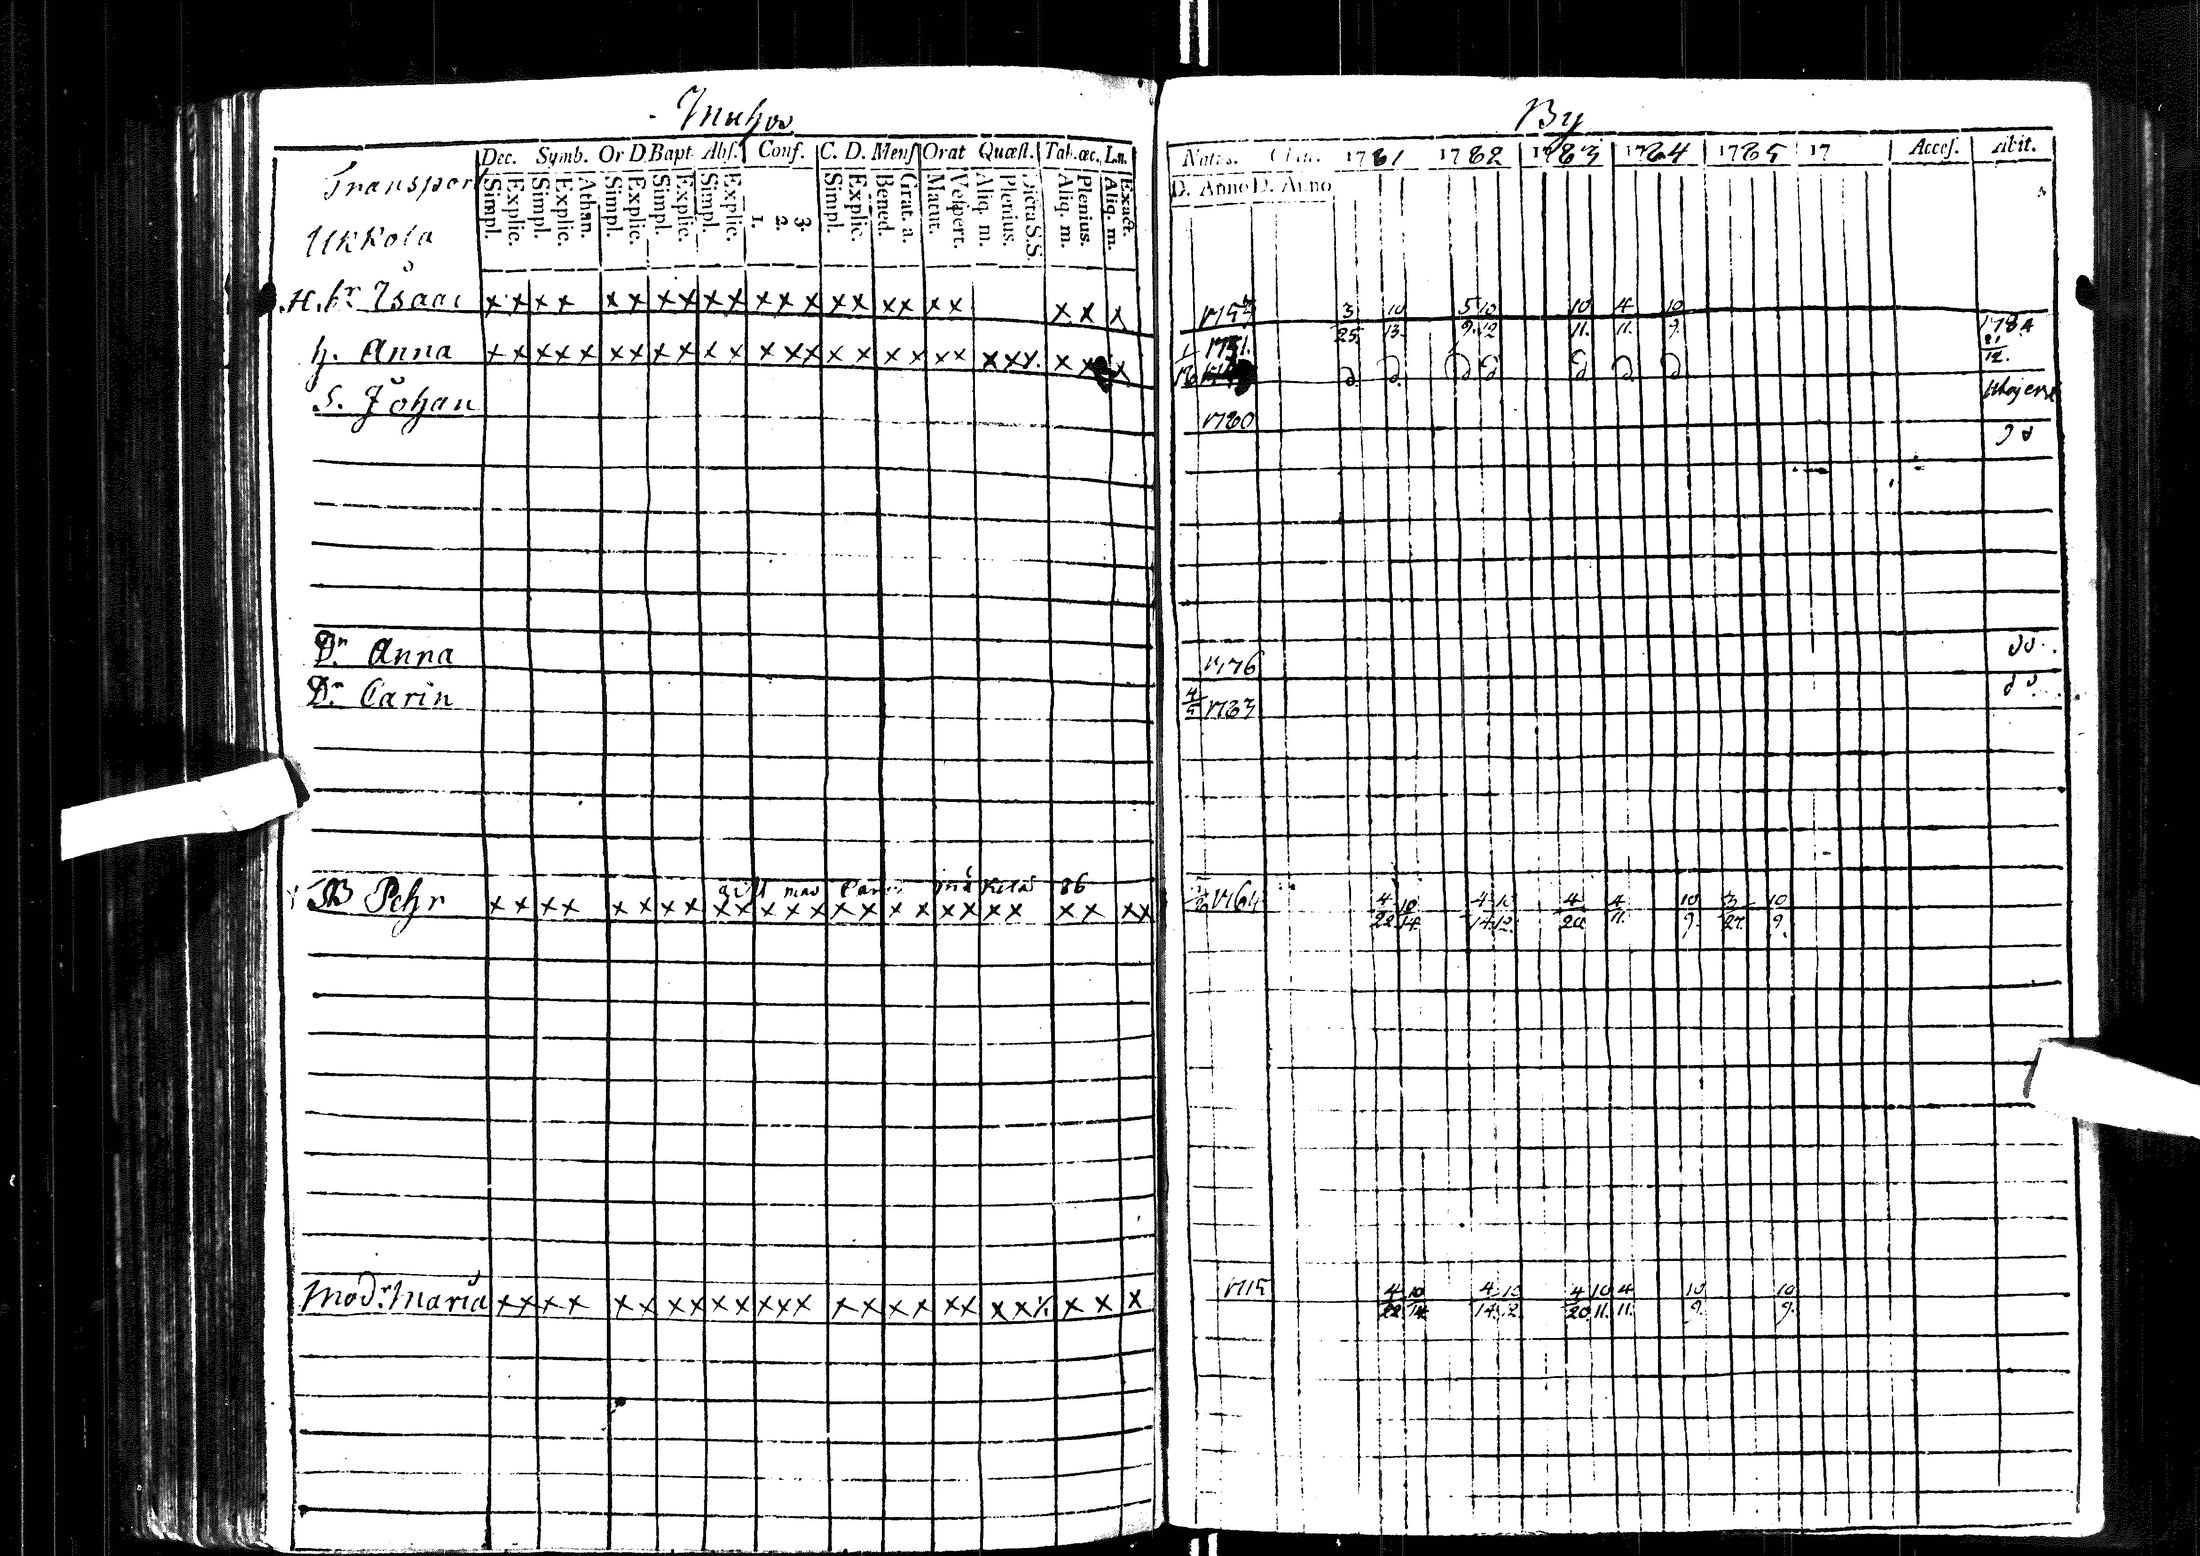 By
Dec. Symb. Or D. Bapt Abs. Conf. C. D. Mens Orat Quæst. Tab. œc. Ln.
Simpl. Explic. Simpl. Explic. Athan. Simpl. Explic. Simpl. Explic. Simpl. Explic. 1. 2. 3. Simpl. Explic. Bened. Grat. a. Matut. Vespert. Aliq. m. Plenius. Dicta S.S. Aliq. m. Plenius. Aliq. m. Exact.
Natus. 1781 1782 1783 1784 1785 17 Acces. Abit.
D. Anno D. Anno
Transport
Ukkola
H. br. Isaac x x x x x x x x x x x x x x x x x x x x x x 3/25 10/13 5/9 10/12 10/11. 4/11. 10/9. 1784 21/12.
h. Anna x x x x x x x x x x x x x x x x x x x x x x x x x x 1751.
S. Johan 1780
Dr. Anna 1776
Dr. Carin 4/5 1783
86
B Pehr x x x x x x x x x x x x x x x x x x x x x x x x x x 1764 4/22 10/14 4/14 10/12. 4/20 4/11. 10/9. 3/27. 10/9.
Mod.r Maria x x x x x x x x x x x x x x x x x x x x x x x x x 1715 4/22 10/14 4/14 10/12. 4/20 10/11. 4/11. 10/9. 10/9.